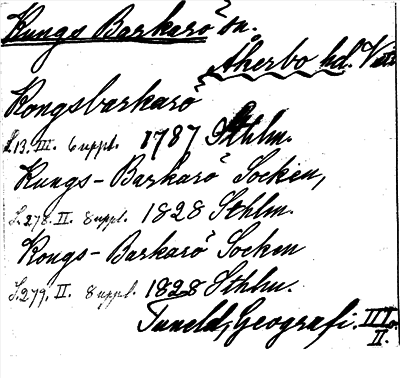 Kungs Barkarö sn.
Åkerbo hd. Vstm
Kongsbarkarö
S.13. III. 6 uppl. 1787 Sthlm.
Kungs-Barkarö Socken,
S.278. II. 8 uppl. 1828 Sthlm.
Kongs-Barkarö Socken
S.279. II. 8 uppl. 1828 Sthlm.
Tuneld, Geografi. III.
II.